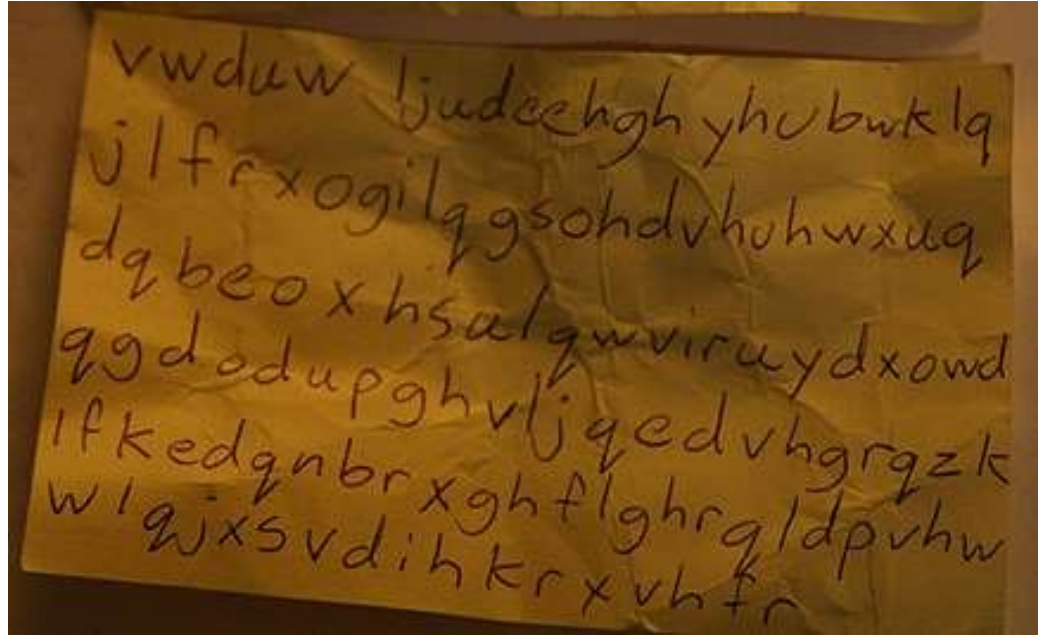 vwduw ljudeehgh yhubwklq
jlfrxogilqgsohdvhuhwxuq
dqbeoxhsulqwviruydxowd
qgdodupghvljqedvhgrqzk
lfkedqnbrxghflghrqldpvhw
wlqjxsvdihkrxvhfr